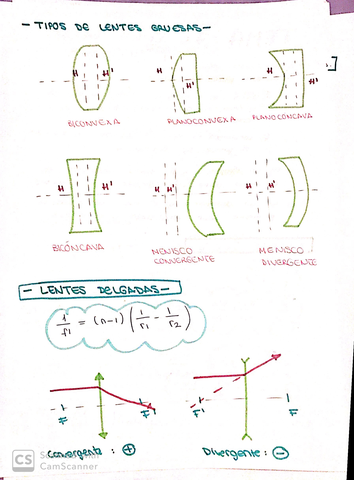 - TIPOS DE LENTES GRUESAS -
H H'
H'
H H'
BICONVEXA
PLANOCONVEXA
PLANOCONCAVA
H H'
H H'
H H'
BICÓNCAVA
MENISCO
CONVERGENTE
MENISCO
DIVERGENTE
- LENTES DELGADAS -
1/f' = (n-1) (1/r1 - 1/r2)
F F'
F' F
Convergente: +
Divergente: -
CS
CamScanner